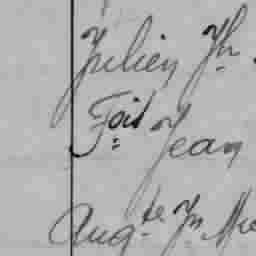 Julien Jh.
Foit Jean
Aug.te Jn. Mie